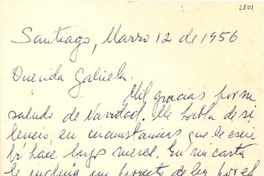 2801
Santiago, Marzo 12 de 1956
Querida Gabriela.
Mil gracias por su
saludo de Navidad. Me habla de si-
lencio, en circunstancias que le escri-
bí hace largos meses. En mi carta
le incluía un proyecto de ley por el